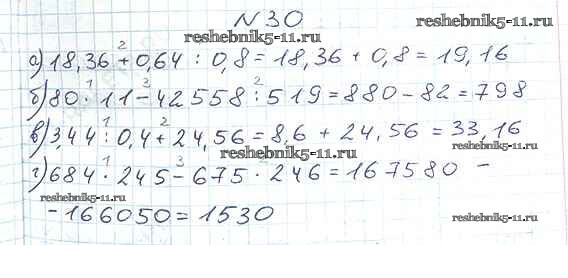 N 30
reshebnik5-11.ru
а) 18,36 + 0,64 : 0,8 = 18,36 + 0,8 = 19,16
2
reshebnik5-11.ru
б) 80 · 11 - 42558 : 519 = 880 - 82 = 798
1 3 2
в) 3,44 : 0,4 + 24,56 = 8,6 + 24,56 = 33,16
1 2
reshebnik5-11.ru
г) 684 · 245 - 675 · 246 = 167580 -
1 3 2
reshebnik5-11.ru
- 166050 = 1530
reshebnik5-11.ru